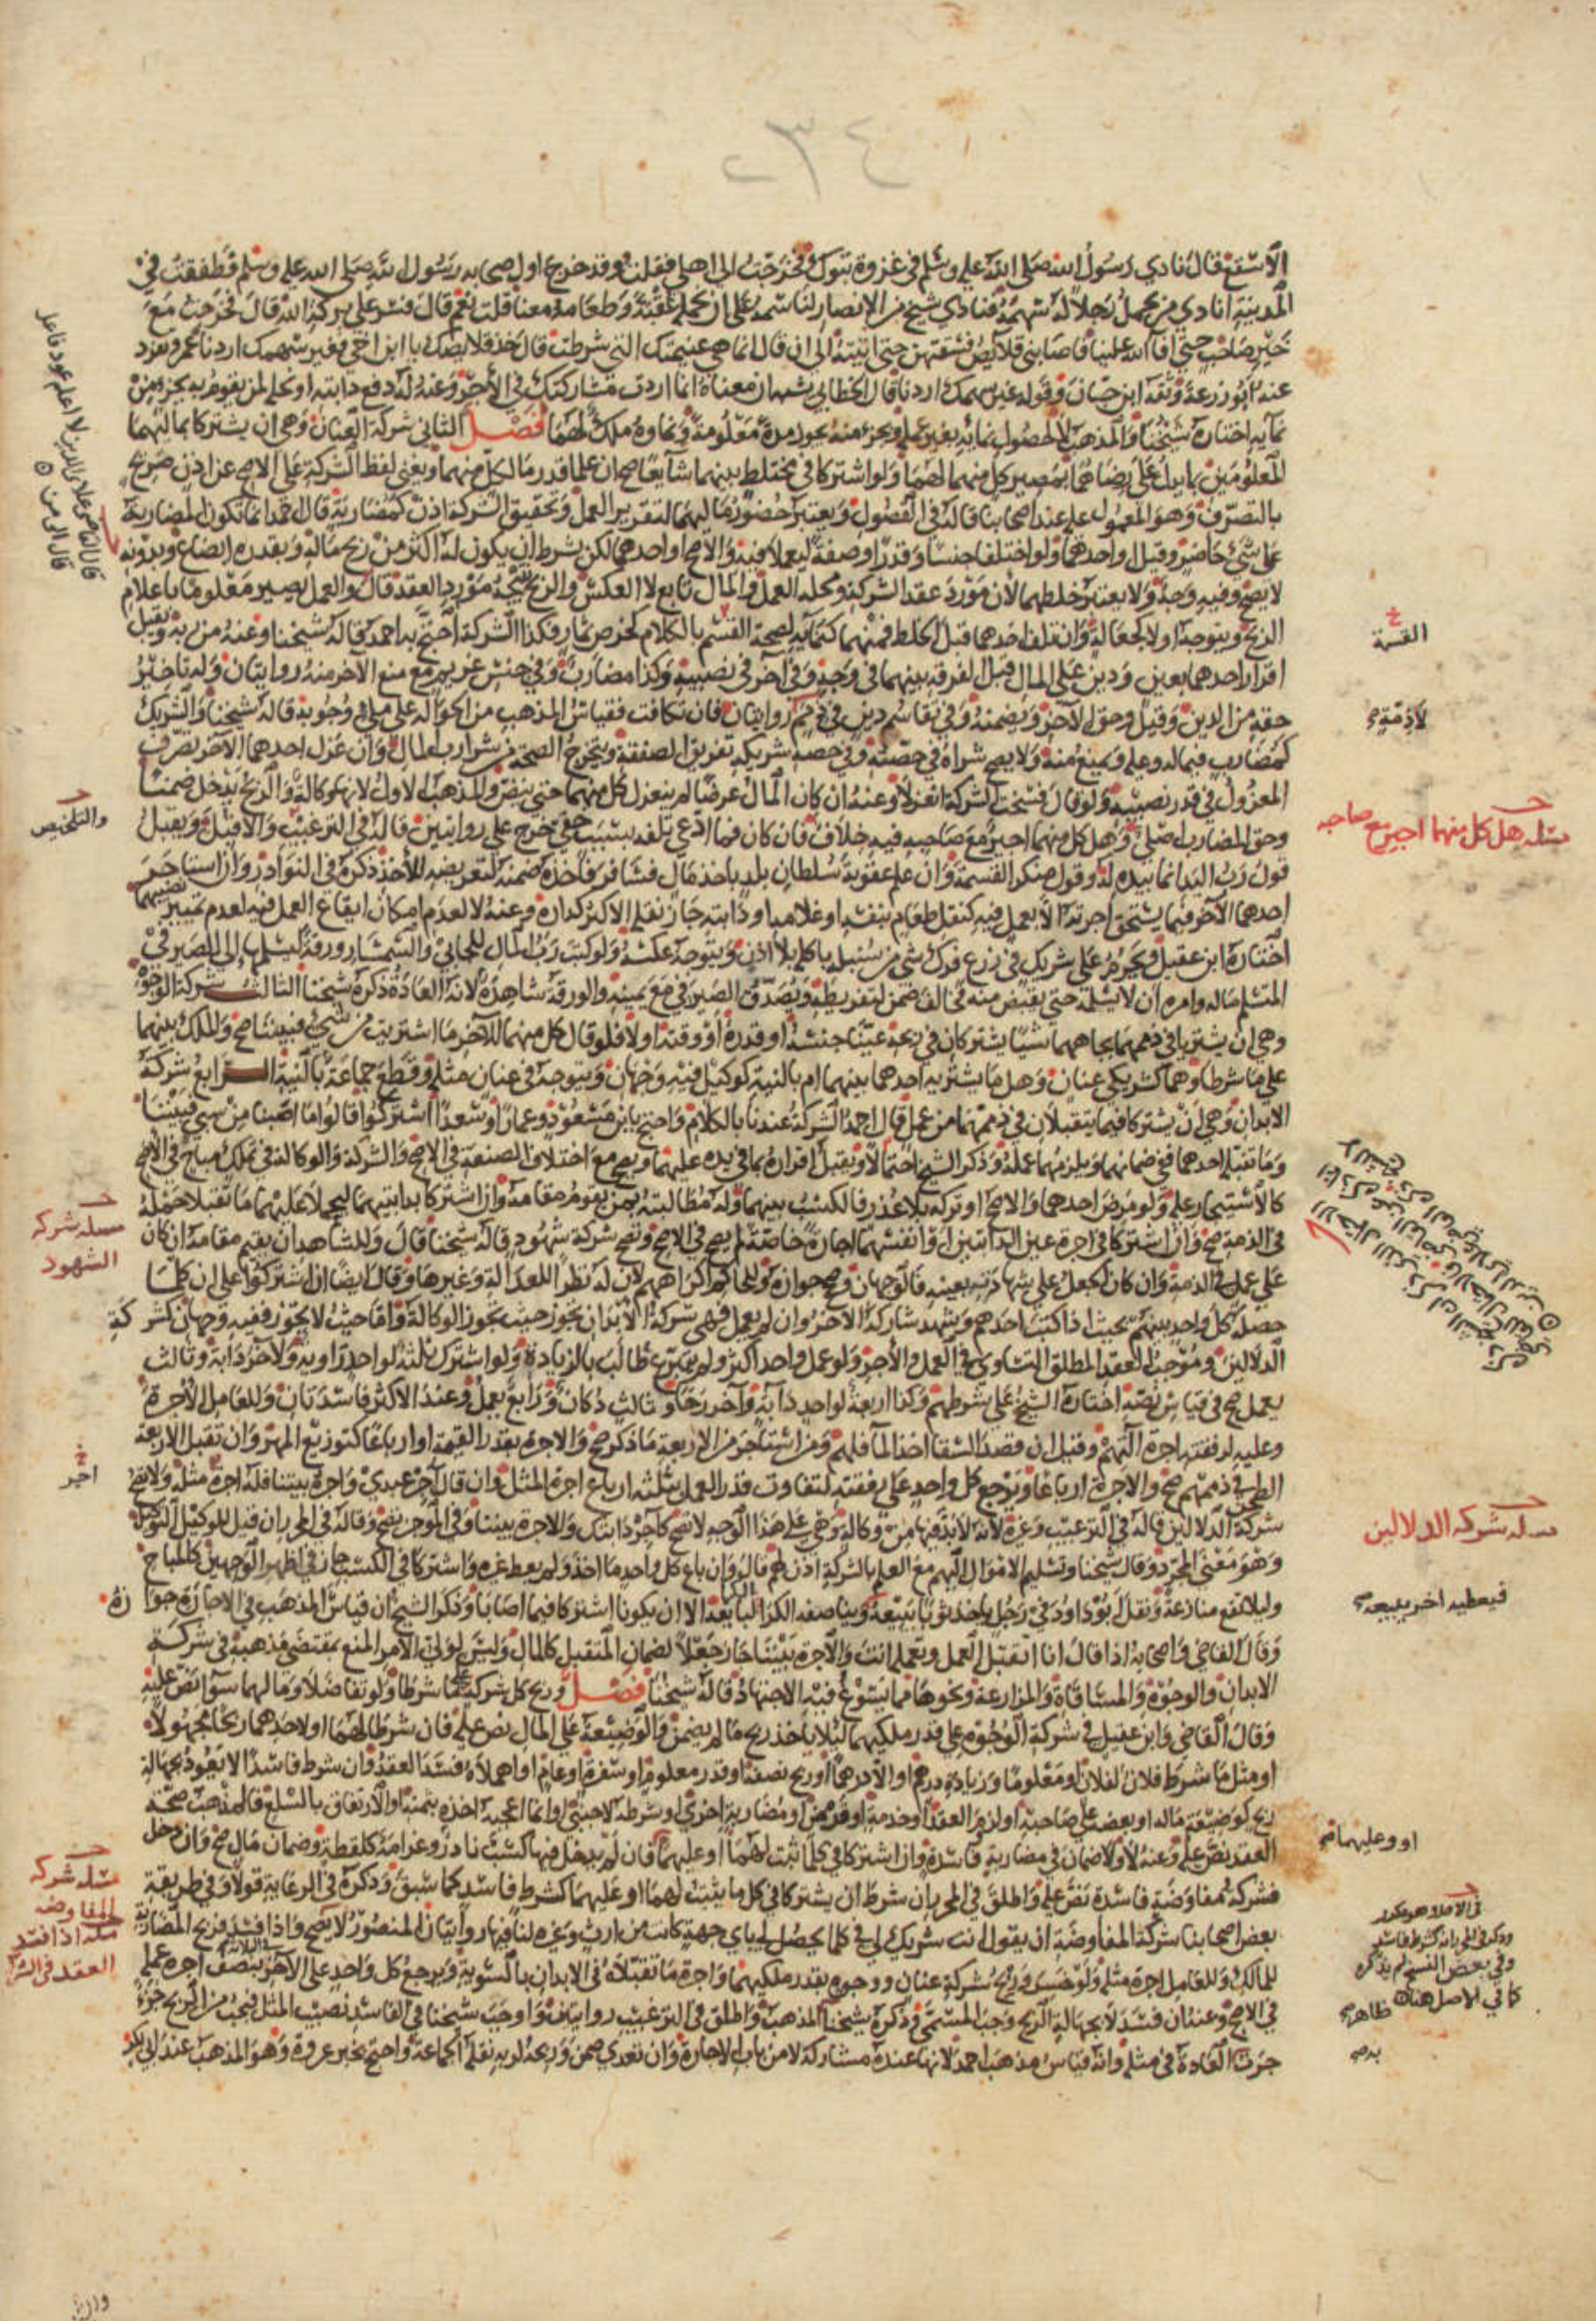 ٣٤
الأسقع قال نادى رسول الله صلى الله عليه وسلم في غزوة تبوك فخرجت الى اهلي فقلت وقد خرج اول صحابة رسول الله صلى الله عليه وسلم فطفقت في
المدينة انادي من يحمل رجلا له سهمه فنادى شيخ من الانصار لنا سهمه على ان نحمله عقبة وطعامه معنا قلت نعم قال فسر على بركة الله قال فخرجت مع
خير صاحب حتى افاء الله علينا فاصابني قلائص فسقتهن حتى اتيته الى ان قال انما هي غنيمتك التي شرطت قال خذ قلائصك يا ابن اخي فغير سهمك اردنا
عنه ابو زرعة وثقه ابن حبان وقوله غير سهمك اردنا قال الخطابي يشبه ان معناه انما اردت مشاركتك في الأجر وعنه له دفع دابته او نحله لمن يقوم به بجزء من
نمائه اختاره شيخنا والمذهب لا لحصول نمائه بغير عمله وبجزء منه يجوز مدة معلومة ونماؤه ملك لهما فصل الثاني شركة العنان وهي ان يشتركا بماليهما
المعلومين بما يدل على رضاهما بمصير كل منهما لهما ولو اشتركا في مختلط بينهما شائعا صح ان علما قدر ما لكل منهما ويغني لفظ الشركة على الاصح عن اذن صريح
بالتصرف وهو المعمول عليه عند اصحابنا قاله في الفصول ويعتبر حضور ماليهما لتقرير العمل وتحقيق الشركة اذن كمضاربة قال احمد انما تكون المضاربة
على شيء حاضر وقيل او احدهما ولو اختلفا جنسا وقدرا وصفة ليعملا فيه والأصح او احدهما لكن بشرط ان يكون له اكثر من ربح ماله وبقدره ابضاع وبدونه
لا يصح وفيه وجه ولا يعتبر خلطهما لان مورد عقد الشركة ومحله العمل والمال تابع لا العكس والربح نتيجة مورد العقد قال والعمل يصير معلوما باعلام
الربح ويتوجه او لا كجعالة وان تلف احدهما قبل الخلط فمنهما كنمائه لصحة القسم بالكلام كخرص ثمار فكذا الشركة احتج به احمد قاله شيخنا وعنه من ربه ويقبل
اقرار احدهما بعين ودين على المال قبل الفرقة بينهما في وجه وفي آخر في نصيبه وكذا مضارب وفي حبس غريم مع منع الآخر منه روايتان وله تأخير
حقه من الدين وقيل وحق الآخر ويضمنه وفي تقاسم دين في ذمم روايتان فان تكافت فقياس المذهب من الحوالة على مليء وجوبه قاله شيخنا والشريك
كمضارب فيما له وعليه ويمنع منه ولا يصح شراه في حصته وفي حصة شريكه تفريق الصفقة ويتخرج الصحة من شرا رب المال وان عزل احدهما الآخر تصرف
المعزول في قدر نصيبه ولو قال فسخت الشركة انعزلا وعنه ان كان المال عرضا لم ينعزل كل منهما حتى ينض والمذهب الاول لانها وكالة والربح يدخل ضمنا
وحق المضارب اصلي وهل كل منهما اجير مع صاحبه فيه خلاف فان كان فما ادعى تلفه بسبب خفي خرج على روايتين قاله في الترغيب والا قبل ويقبل
قول رب اليد انما بيده له وقول منكر القسمة وان علم عقوبة سلطان بلد باخذ مال فسافر فأخذه ضمنه لتعريضه للأخذ ذكره في النوادر وان استاجر
احدهما الآخر فيما يستحق اجرته الا بعمل فيه كنقل طعام بنفسه او غلامه او دابته جاز نقله الاكثر كداره وعنه لا لعدم امكان ايقاع العمل فيه لعدم تمييز نصيبهما
اختاره ابن عقيل ويحرم على شريك في زرع فرك شيء من سنبله ياكله بلا اذن ويتوجه عكسه ولو كتب رب المال للجابي والسمسار ورقة ليسلمها الى الصيرفي
المتسلم ماله وامره ان لا يسلمه حتى يقبض منه فخالف ضمن لتفريطه ويصدق الصيرفي مع يمينه والورقة شاهدة لانه العادة ذكره شيخنا الثالث شركة الوجوه
وهي ان يشتريا في ذممهما بجاههما شيئا يشتركان في ربحه عينا جنسه او قدره او وقته او لا فلو قال كل منهما للآخر ما اشتريت من شيء فبيننا صح والملك بينهما
على ما شرطا وهما كشريكي عنان وهل ما يشتريه احدهما بينهما ام بالنية كوكيل فيه وجهان ويتوجه في عنان مثله وقطع جماعة بالنية الرابع شركة
الابدان وهي ان يشتركا فيما يتقبلان في ذممهما من عمل قال احمد الشركة عندنا بالكلام واحتج بابن مسعود وعمار وسعد اشتركوا قالوا ما اصبنا من شيء فبيننا
وما تقبله احدهما ففي ضمانهما ويلزمهما عمله وذكر الشيخ احتمالا ويقبل اقراره بما في يده عليهما ويصح مع اختلاف الصنعة في الاصح والشركة والوكالة في تملك مباح في الأصح
كالاستيجار عليه ولو مرض احدهما والاصح او تركه بلا عذر فالكسب بينهما وله مطالبته بمن يقوم مقامه وان اشتركا بدابتيهما ليحملا عليهما ما تقبلا حمله
في الذمة صح وان اشتركا في اجرة عين الدابتين او انفسهما اجارة خاصة لم يصح في الاصح وتصح شركة شهود قاله شيخنا قال وللشاهد ان يقيم مقامه ان كان
على عمل في الذمة وان كان الجعل على شهادته بعينه فالوجهان وصح جوازه وللحاكم اكراههم لان له نظرا للعدالة وغيرها وقال ايضا ان اشتركوا على ان كلما
حصله كل واحد بينهم بحيث اذا كتب احدهم وشهد شاركه الآخر وان لم يعمل فهي شركة الابدان تجوز حيث تجوز الوكالة واما حيث لا يجوز ففيه وجهان كشركة
الدلالين وموجب العقد المطلق التساوي في العمل والأجر ولو عمل واحد اكثر ولم يتبرع طالب بالزيادة ولو اشترك ثلثة لواحد راوية ولآخر دابة وثالث
يعمل صح في قياس نصه اختاره الشيخ على شرطهم وكذا اربعة لواحد دابة وآخر رحا وثالث دكان ورابع يعمل وعند الأكثر فاسدتان وللعامل الأجرة
وعليه لرفقته اجرة آلتهم وقيل ان قصد السقا اخذ الماء فلهم ومن استاجر من الاربعة ما ذكر صح والاجرة بقدر القيمة او ارباعا كتوزيع المهر وان تقبل الاربعة
الطحن في ذممهم صح والاجرة ارباعا ويرجع كل واحد على رفقته لتفاوت قدر العمل بثلثة ارباع اجرة المثل وان قال آجر عبدي واجرته بيننا فله اجرة مثله ولا تصح
شركة الدلالين قاله في الترغيب وغيره لانه لا بد فيها من وكالة وهي على هذا الوجه لا تصح كآجر دابتك والاجرة بيننا وفي الموجز تصح وقاله في المحرر ان قيل للوكيل التوكيل
وهو معنى المجرد وقال شيخنا وتسليم الاموال اليهم مع العلم بالشركة اذن لهم قال وان باع كل واحد ما اخذ ولم يعط غيره واشتركا في الكسب جاز في اظهر الوجهين كالمباح
وليلا تقع منازعة ونقل ابو داود في رجل ياخذ ثوبا ليبيعه ويناصفه الكرا الذي باعه الا ان يكونا اشتركا فيما اصابا وذكر الشيخ ان قياس المذهب في الاجارة جوازه
وقال القاضي واصحابه اذا قال انا اتقبل العمل وتعمله انت والأجرة بيننا جاز جعلا لضمان المتقبل كالمال وليس لولي الأمر المنع بمقتضى مذهبه في شركة
الابدان والوجوه والمساقاة والمزارعة ونحوها مما يسوغ فيه الاجتهاد قاله شيخنا فصل وربح كل شركة على ما شرطا ولو تفاضلا ومالهما سوا نص عليه
وقال القاضي وابن عقيل في شركة الوجوه على قدر ملكيهما لئلا يأخذ ربح ما لم يضمن والوضيعة على المال نص عليه فان شرطا لهما او لاحدهما ربحا مجهولا
او مثل ما شرط فلان لفلان او معلوما وزيادة درهم او الا درهما او ربح نصفه او قدر معلوم او سفرة او عام او اهملاه فسد العقد وان شرط فاسدا لا يعود بجهالة
ربح كوضيعة ماله او بعضه على صاحبه او لزوم العقد او خدمة او قرض او مضاربة اخرى او شرطه لاجنبي او انما اعجبه اخذه بثمنه او الارتفاق بالسلع فالمذهب صحة
العقد نص عليه وعنه لا ولا ضمان في مضاربة فاسدة وان اشتركا في كلما ثبت لهما او عليهما فان لم يدخل فيها كسب نادر وغرامة كلقطة وضمان مال صح وان دخل
فشركة مفاوضة فاسدة نص عليه واطلق في المحرر ان شرط ان يشتركا في كل ما يثبت لهما او عليهما كشرط فاسد كما سبق وذكره في الرعاية قولا وفي طريقة
بعض اصحابنا شركة المفاوضة ان يقول انت شريك لي في كلما يحصل لي باي جهة كانت من ارث وغيره لنا فيها روايتان المنصور لا يصح واذا فسد فربح المضاربة
للمالك وللعامل اجرة مثله ولو خسر وربح شركة عنان ووجوه بقدر ملكيهما واجرة ما تقبلاه في الابدان بالسوية ويرجع كل واحد على الآخر بنصف اجرة عمله
في الاصح وعنه ان فسد لا بجهالة الربح وجب المسمى وذكره شيخنا المذهب واطلق في الترغيب روايتان واوجب شيخنا في الفاسد نصيب المثل فيجب من الربح جزء
جرت العادة في مثله وانه قياس مذهب احمد لانها عنده مشاركة لا من باب الاجارة وان تعدى ضمن وربحه لربه نقله الجماعة واحتج بخبر عروة وهو المذهب عند ابي بكر
القسمة
لا ذمة
مسئلة هل كل منهما اجير مع صاحبه
والتلخيص
مسئلة شركة
الشهود
اجر
مسئلة شركة الدلالين
فيعطيه اخر يبيعه
او وعليهما
مسئلة شركة
المفاوضة
مسئلة اذا فسد
العقد في
وفي بعض النسخ لم يذكره
كما في الاصل هنا